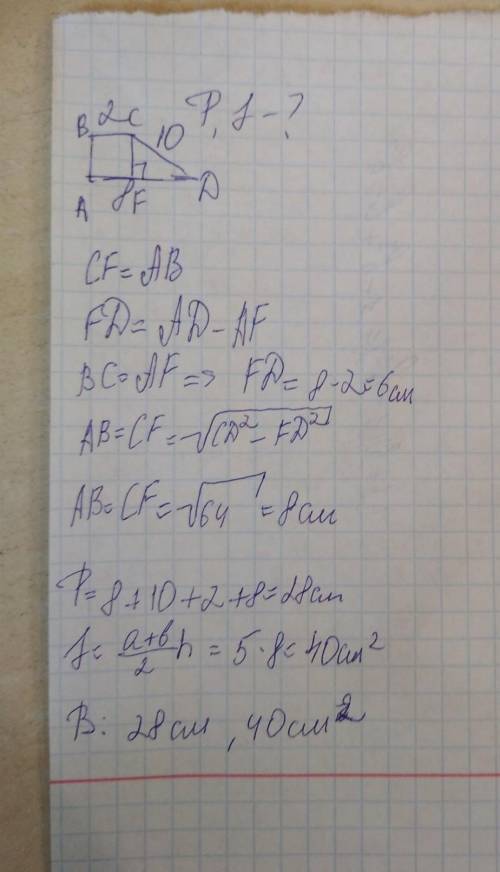 B 2 C 10 P, S - ?
A 8 F D
CF = AB
FD = AD - AF
BC = AF => FD = 8 - 2 = 6 см
AB = CF = √CD² - FD²
AB = CF = √64 = 8 см
P = 8 + 10 + 2 + 8 = 28 см
S = a+b/2 h = 5 · 8 = 40 см²
В: 28 см, 40 см²